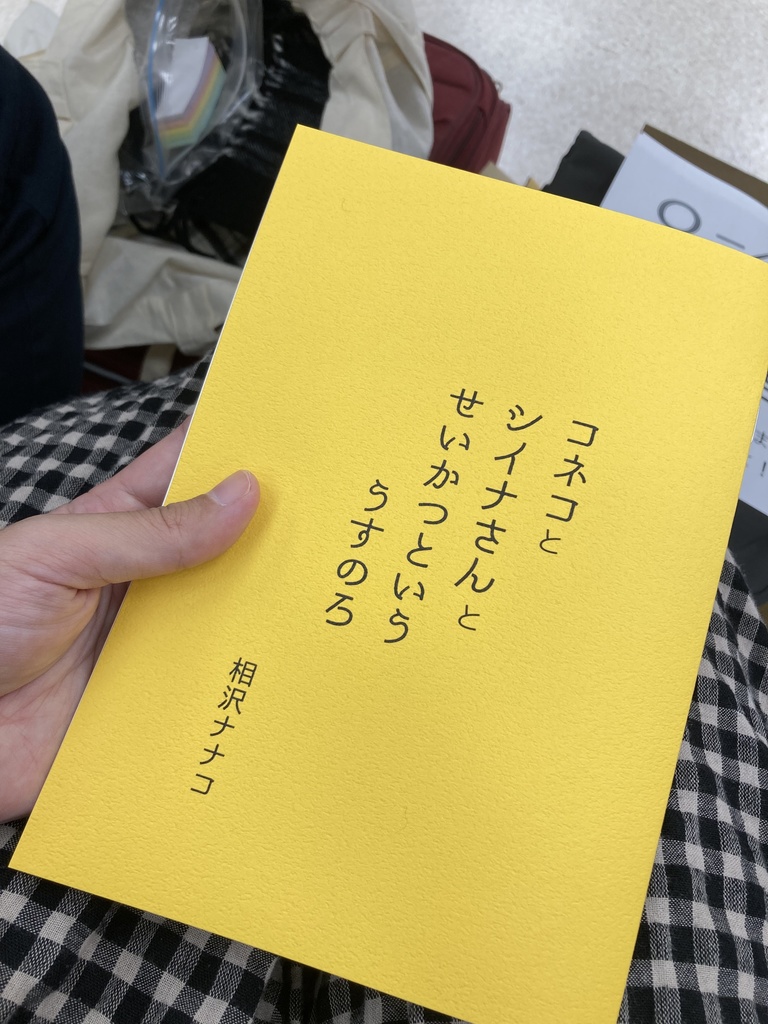 コネコと
シイナさんと
せいかつという
うすのろ
相沢ナナコ